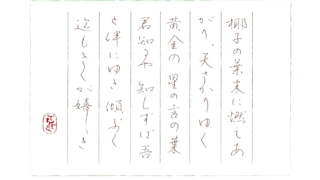 椰子の葉末に燃てあ
がり、天さかりゆく
黄金の 星の言の葉
君知るや 知しずば吾
と伴にゆき 傾ぶく
迄もきくが嬉しき